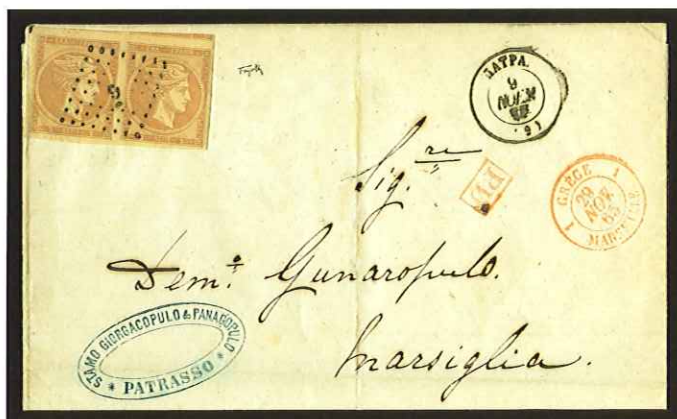 9
ΠΑΤΡΑ.
9
ΝΟΕΜ
(9)
PD
GRÈCE
1
29
NOV
65
1
MARSEILLE
Sig.re
Dem.o Gunaropulo.
Marsiglia.
STAMO GIORGACOPULO & PANAGOPULO
* PATRASSO *